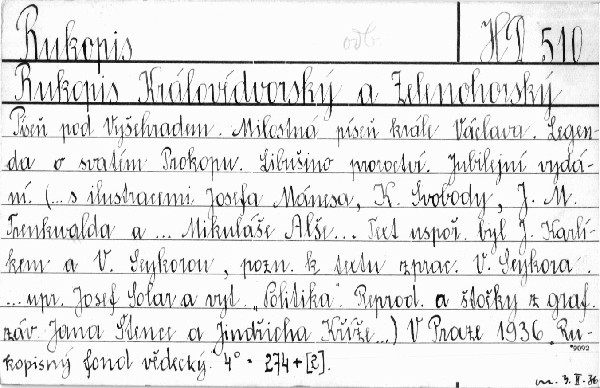 Rukopis odb. HD 510
Rukopis Královédvorský a Zelenohorský
Píseň pod Vyšehradem. Milostná píseň krále Václava. Legen-
da o svatém Prokopu. Libušino proroctví. Jubilejní vydá-
ní. (... s ilustracemi Josefa Mánesa, K. Svobody, J. M.
Trenkwalda a ... Mikuláše Alše... Text uspoř. byl J. Karlí-
kem a V. Seykorou, pozn. k textu zprac. V. Seykora.
... upr. Josef Solar a vyt. „Politika“. Reprod. a štočky z graf.
záv. Jana Štence a Jindřicha Kříže...) V Praze 1936. Ru-
kopisný fond vědecký. 4° - 274+[2].
*9092
m. 3. II. 36